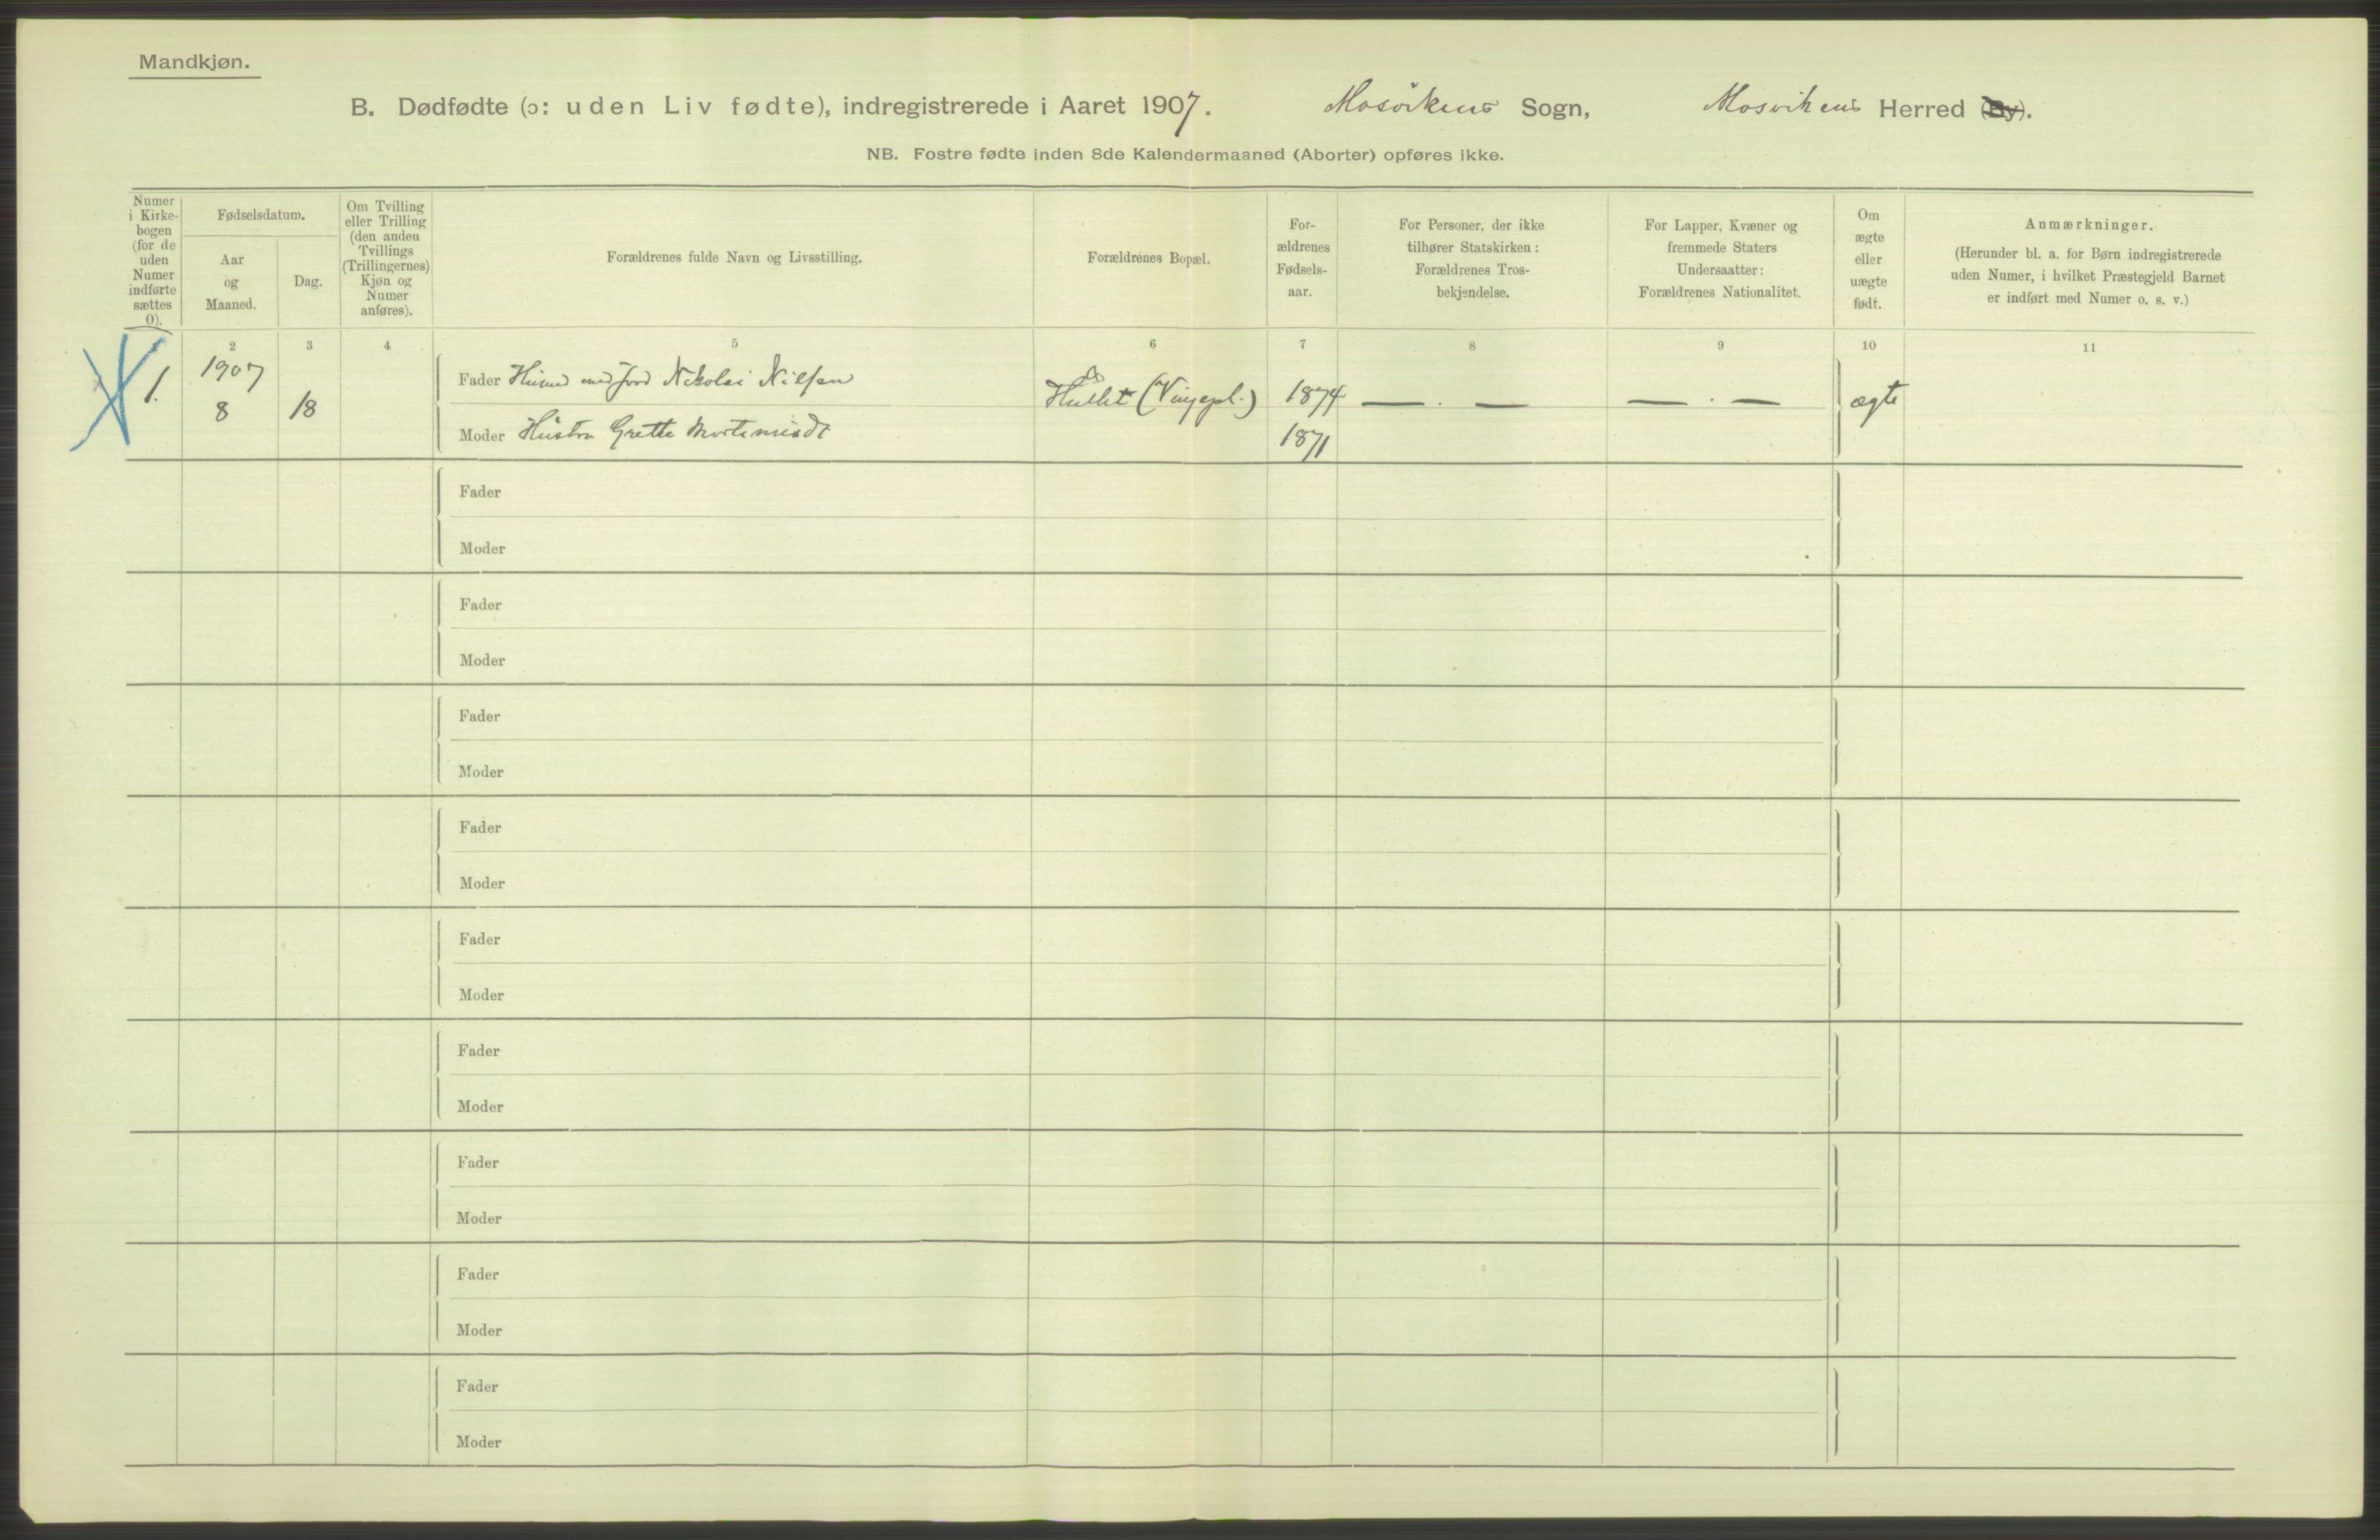 Mandkjøn.
B. Dødfødte (ɔ: uden Liv fødte), indregistrerede i Aaret 1907. Mosvikens Sogn, Mosvikens Herred (By).
NB. Fostre fødte inden 8de Kalendermaaned (Aborter) opføres ikke.
Numer
i Kirke-
bogen
(for de
uden
Numer
indførte
sættes
0).
Fødselsdatum.
Aar
og
Maaned.
Dag.
Om Tvilling
eller Trilling
(den anden
Tvillings
(Trillingernes)
Kjøn og
Numer
anføres).
Forældrenes fulde Navn og Livsstilling.
Forældrenes Bopæl.
For-
ældrenes
Fødsels-
aar.
For Personer, der ikke
tilhører Statskirken:
Forældrenes Tros-
bekjendelse.
For Lapper, Kvæner og
fremmede Staters
Undersaatter:
Forældrenes Nationalitet.
Om
ægte
eller
uægte
født.
Anmærkninger.
(Herunder bl. a. for Børn indregistrerede
uden Numer, i hvilket Præstegjeld Barnet
er indført med Numer o. s. v.)
2 3 4 5 6 7 8 9 10 11
1.
1907
8
18
Fader Husmd med Jord Nikolai Nilsen
Moder Hustru Grette
(Vingepl.)
1874
1871
— . —
— . —
ægte
Fader
Moder
Fader
Moder
Fader
Moder
Fader
Moder
Fader
Moder
Fader
Moder
Fader
Moder
Fader
Moder
Fader
Moder